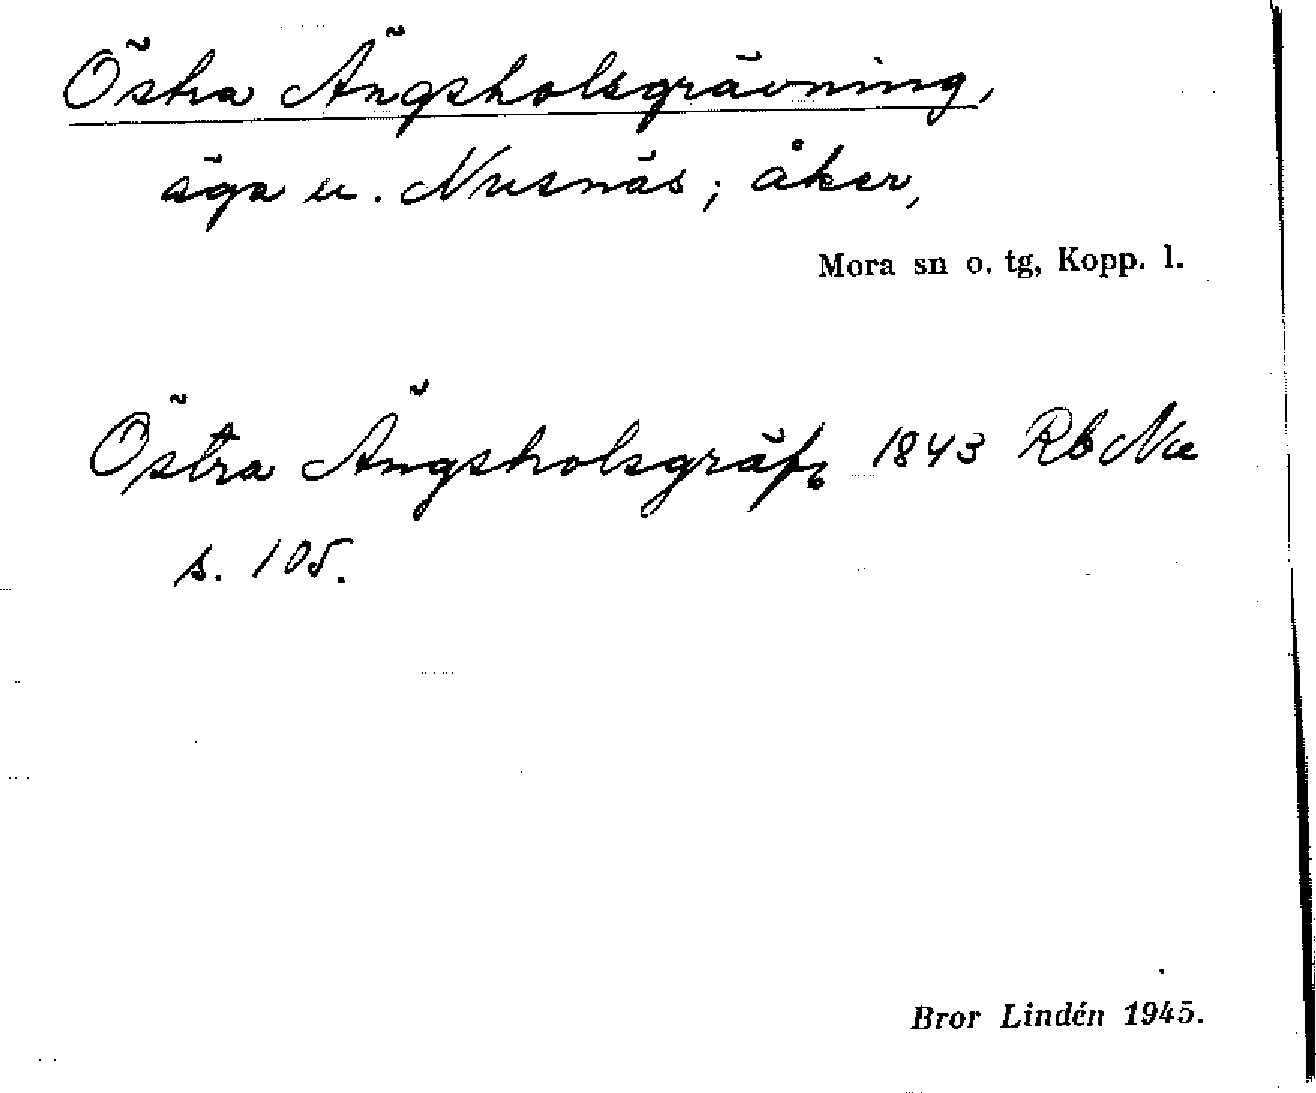 Östra Ängsholsgrävning,
äga u. Nusnäs; åker,
Mora sn o. tg, Kopp. l.
Östra Ängsholsgräfg 1843 Rb Nu
s. 105.
Bror Lindén 1945.